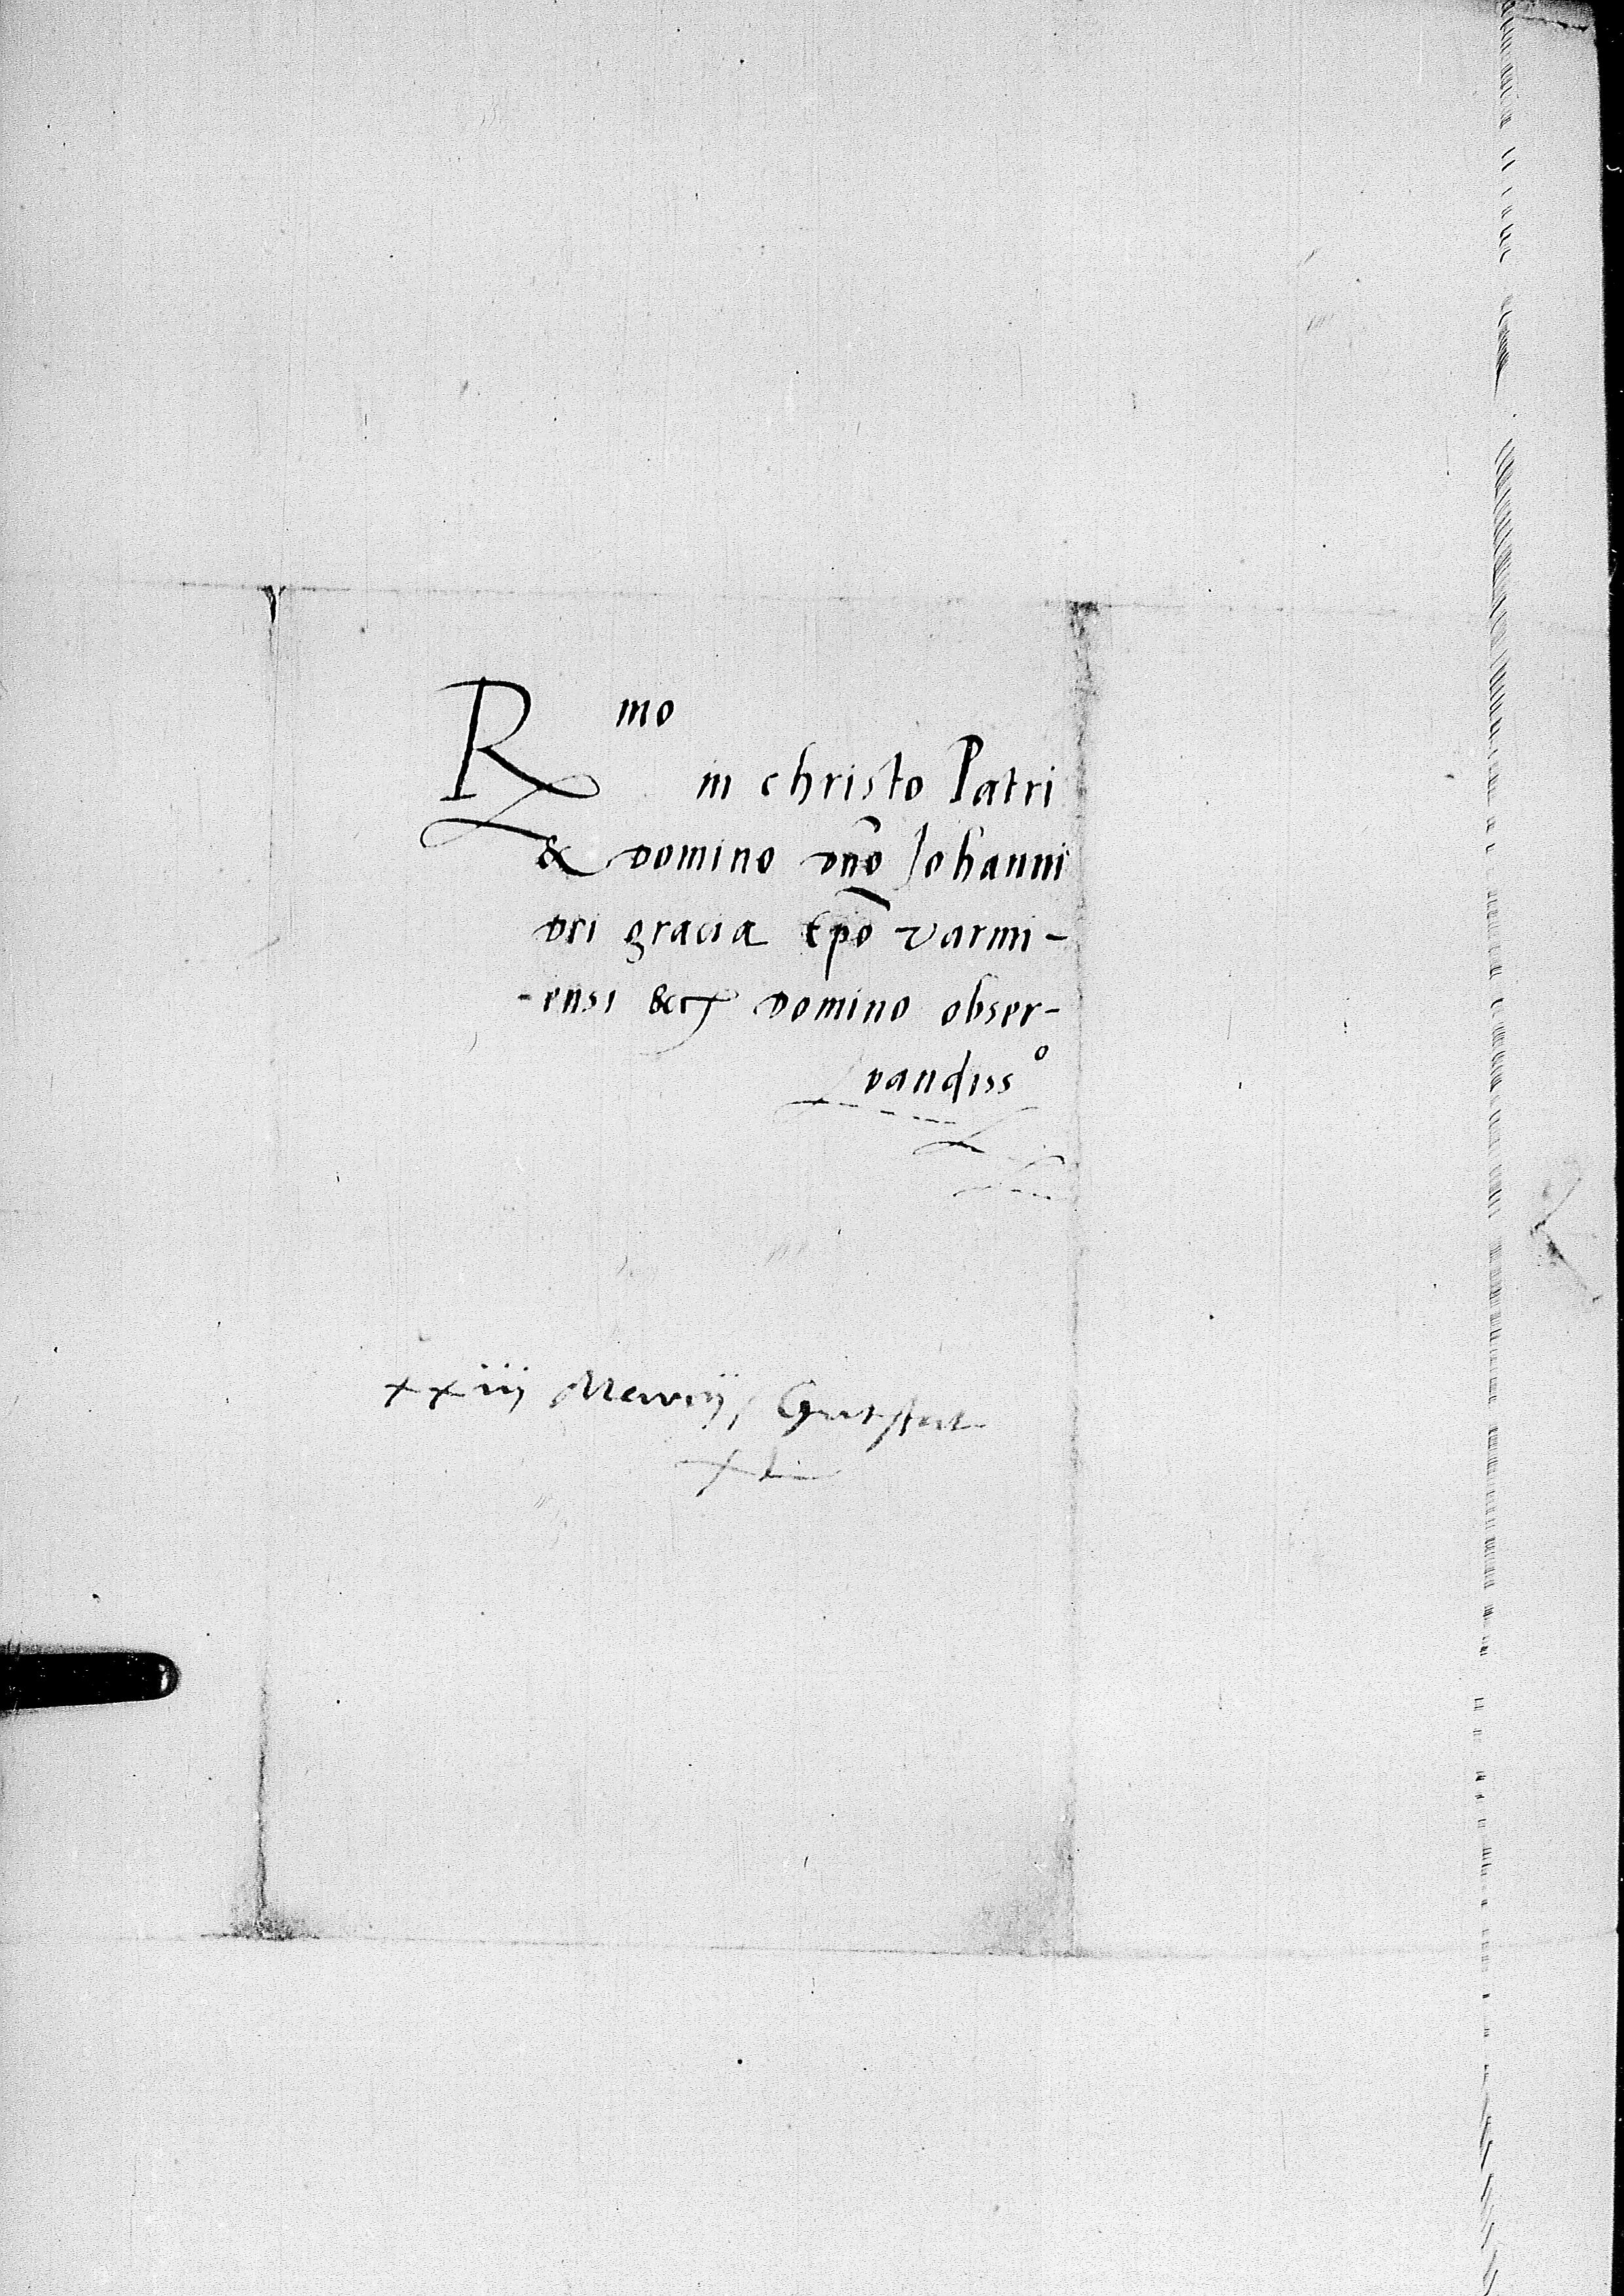 R mo
in christo Patri
& domino dno Johanni
dei gracia Epo varmi-
-ensi &c domino obser-
vandiss o
xxiij